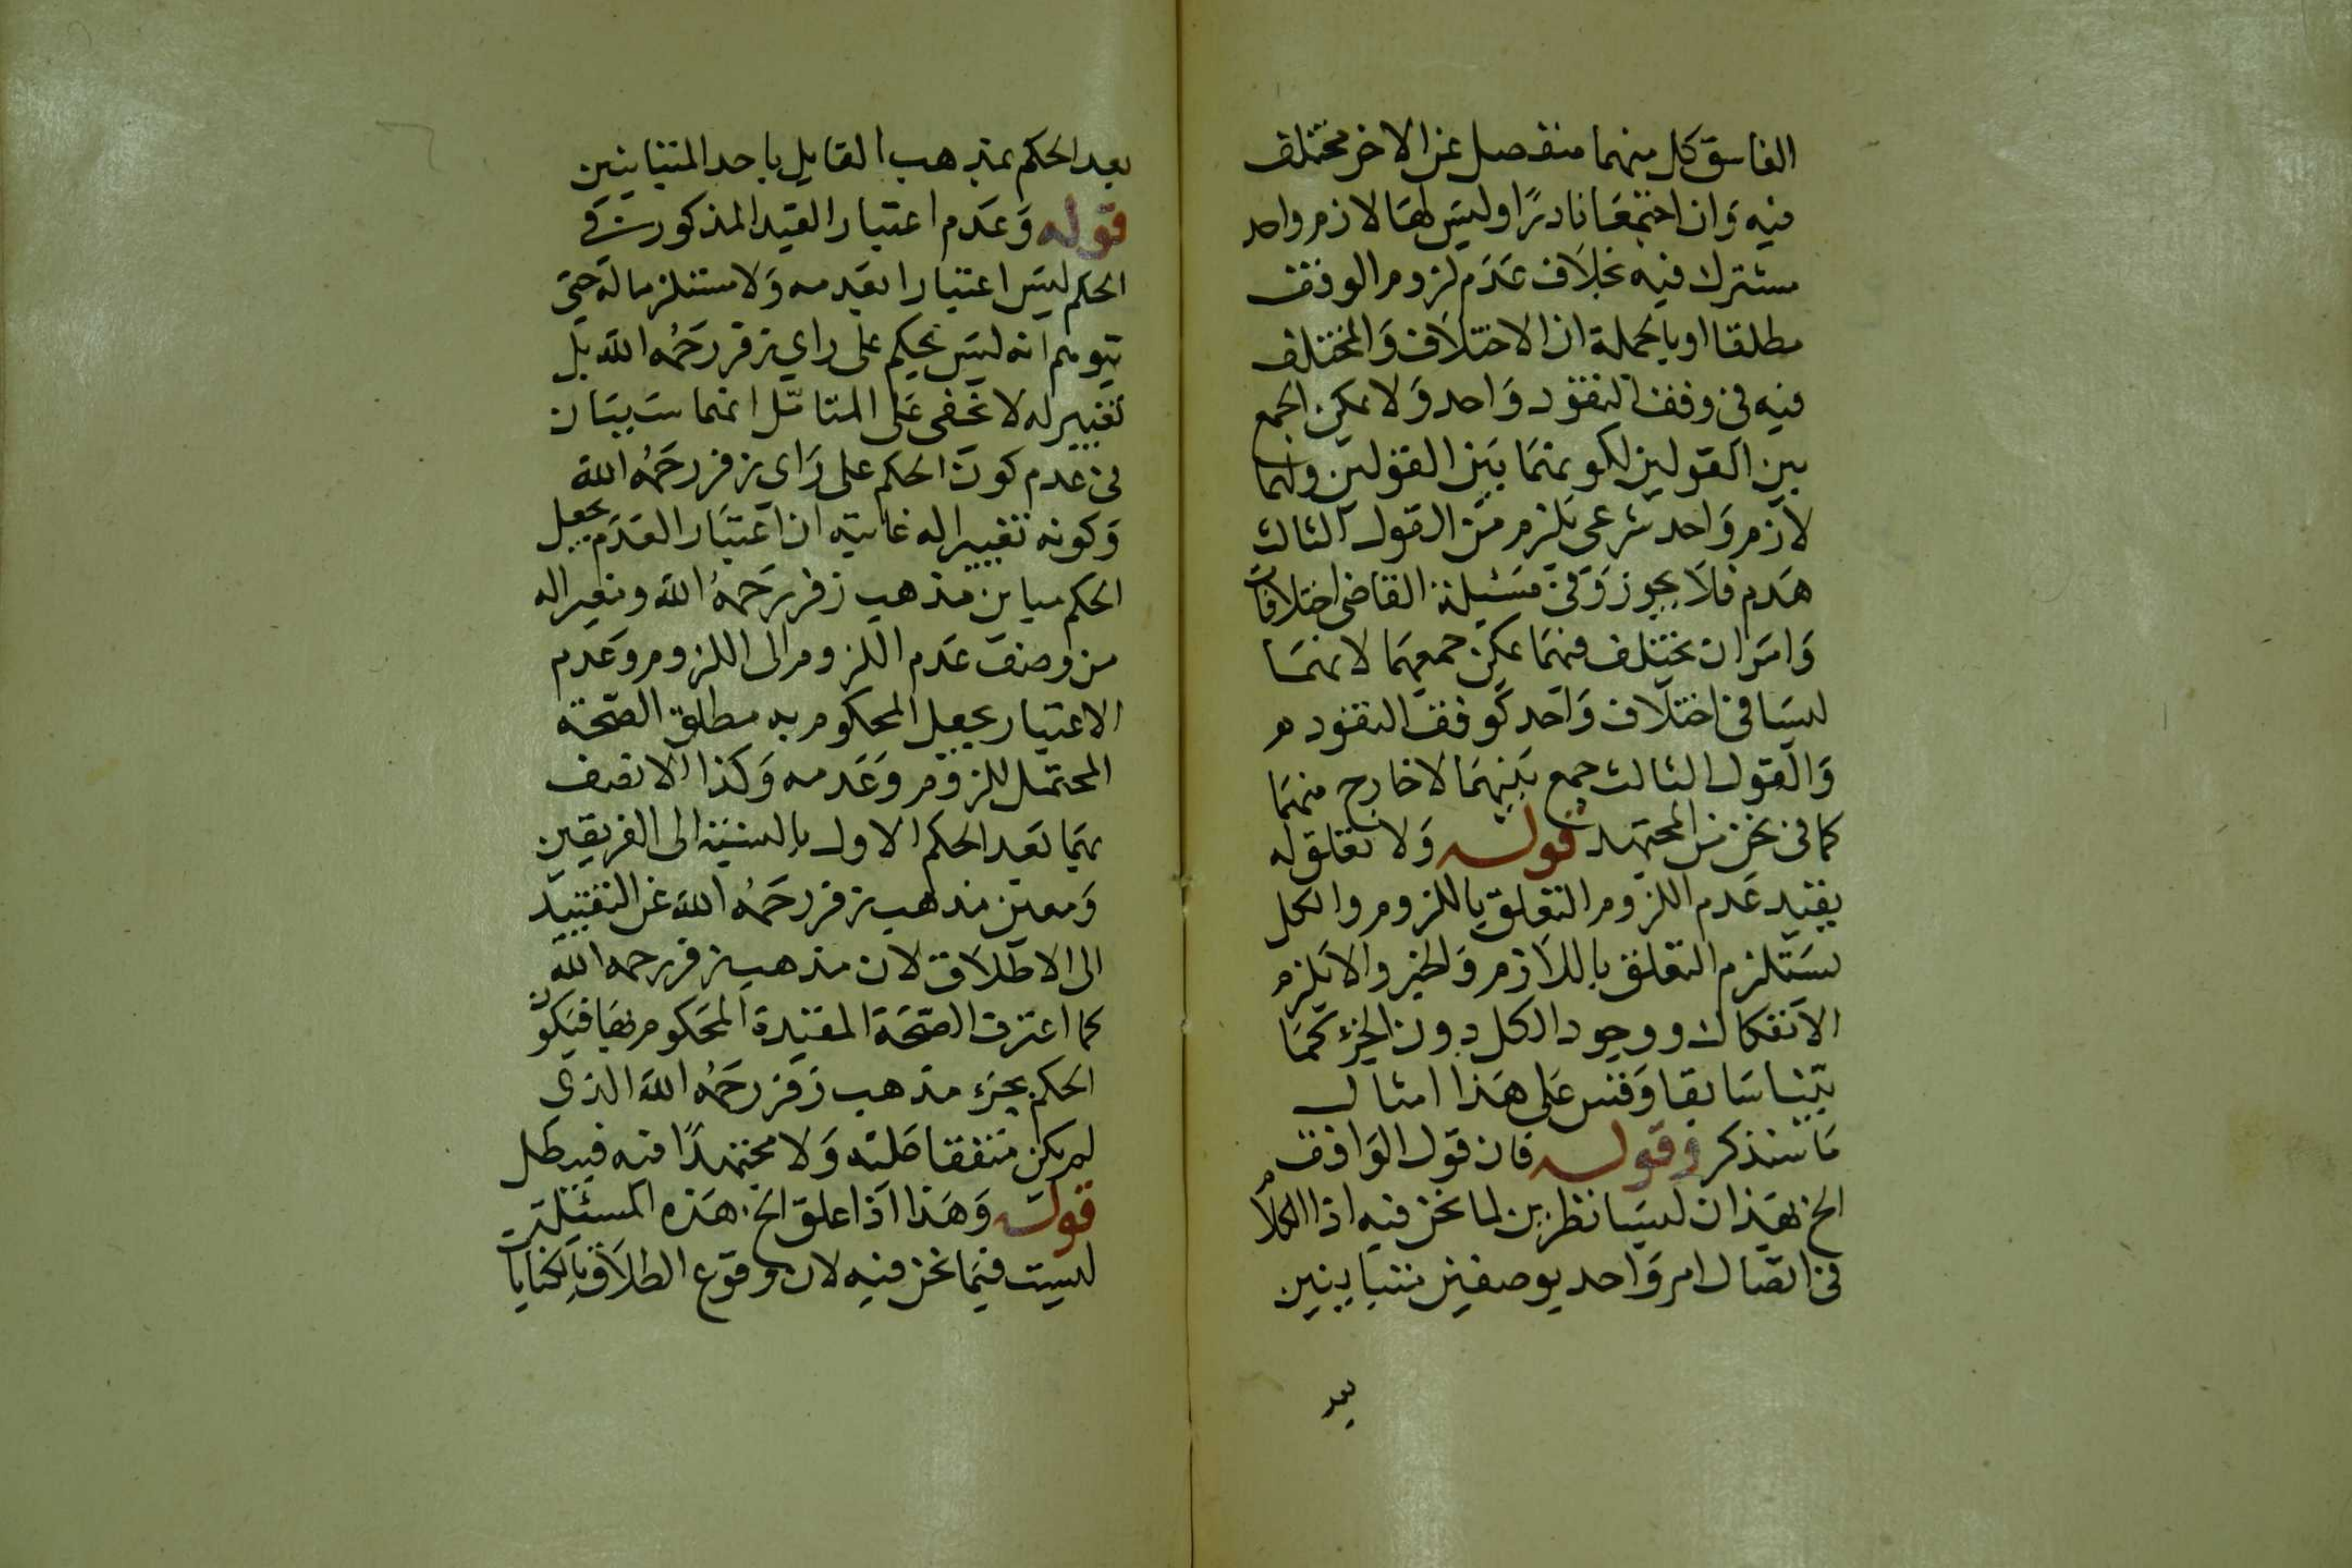 الفاسق كل منهما منفصل عن الاخر مختلف
فيه وان اجتمعا نادرًا وليس لهما لازم واحد
مشترك فيه بخلاف عدم لزوم الوقف
مطلقا او بالجملة ان الاختلاف والمختلف
فيه في وقف النقود واحد ولا يمكن الجمع
بين القولين لكونهما بين القولين ولهما
لازم واحد شرعي يلزم من القول الثالث
هدم فلا يجوز وفي مسئلة القاضي اختلافات
وامران يختلف فيهما يمكن جمعهما لانهما
ليسا في اختلاف واحد كوقف النقود
والقول الثالث جمع بينهما لا خارج منهما
كما في نحن من المجتهد قوله ولا تعلق له
بقيد عدم اللزوم التعلق باللزوم والكل
يستلزم التعلق باللازم والجزء والا يلزم
الانفكاك ووجود الكل دون الجزء كما
بيّنا سابقا وقس على هذا امثال
ما سنذكر وقوله فان قول الواقف
الخ بهذان ليسا نظرين لما نحن فيه اذ الكلام
في اتصال امر واحد بوصفين متباينين
بعد
بعد الحكم بمذهب القايل باحد المتباينين
قوله وعدم اعتبار القيد المذكور في
الحكم ليس اعتبارا بعدمه ولا مستلزما له حتى
يتوهم انه ليس بحكم على راي زفر رحمه الله بل
تغيير له لا يخفى على المتأمّل انهما سببان
في عدم كون الحكم على راي زفر رحمه الله
وكونه تغييرا له غايته ان اعتبار العدم يجعل
الحكم مباين مذهب زفر رحمه الله ومغيرا له
من وصف عدم اللزوم الى اللزوم وعدم
الاعتبار يجعل المحكوم به مطلق الصحة
المحتمل للزوم وعدمه وكذا
بعد الحكم الاول بالنسبة الى الفريقين
مذهب زفر رحمه الله عن التقييد
الى الاطلاق لان مذهب زفر رحمه الله
كما اعترف الصحة المقيدة المحكوم بها فيكون
الحكم بجزء مذهب زفر رحمه الله الذي
لم يكن متفقا عليه ولا مجتهدًا فيه فيبطل
قوله وهذا اذا علق الخ هذه المسئلة
ليست فيما نحن فيه لان وقوع الطلاق بالكنايات